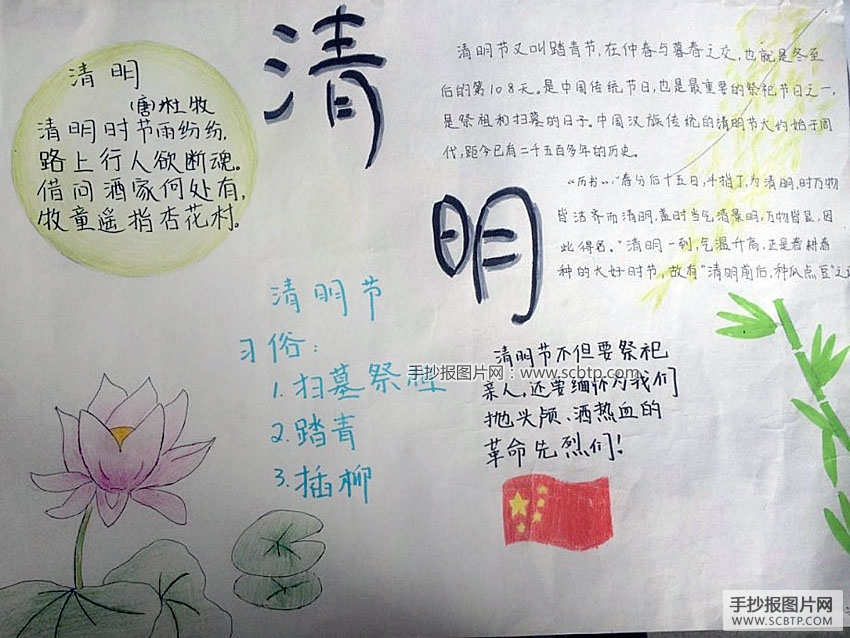 清明
清明
(唐)杜牧
清明时节雨纷纷,
路上行人欲断魂。
借问酒家何处有,
牧童遥指杏花村。
清明节又叫踏青节,在仲春与暮春之交,也就是冬至
后的第108天。是中国传统节日,也是最重要的祭祀节日之一,
是祭祖和扫墓的日子。中国汉族传统的清明节大约始于周
代,距今已有二千五百多年的历史。
《历书》:"春分后十五日,斗指丁,为清明,时万物
皆洁齐而清明,盖时当气清景明,万物皆显,因
此得名。"清明一到,气温升高,正是春耕春
种的大好时节,故有"清明前后,种瓜点豆"之
清明节
习俗:
1.扫墓祭祖
2.踏青
3.插柳
清明节不但要祭祀
亲人,还要缅怀为我们
抛头颅、洒热血的
革命先烈们!
手抄报图片网:www.scbtp.com
手抄报图片网
WWW.SCBTP.COM